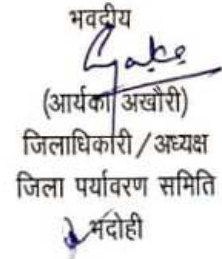 भवदीय
(आर्यका अखौरी)
जिलाधिकारी / अध्यक्ष
जिला पर्यावरण समिति
भदोही